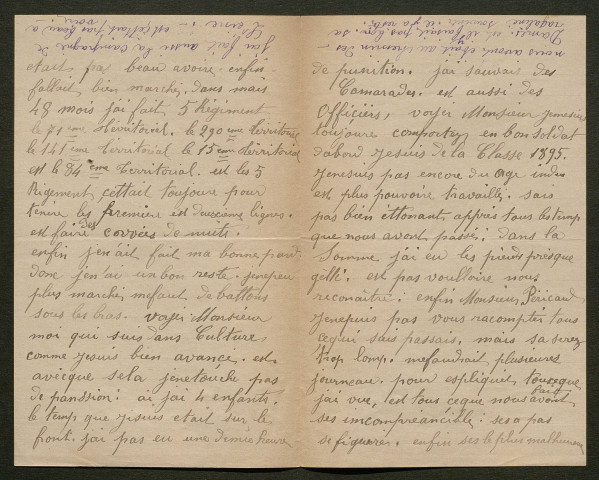 etait pas beau avoire. enfin
fallait bien marché, dans mais
48 mois j'ai fait 5 Régiment
le 71eme térritorial. le 290eme térritorial
le 141eme térritorial le 15eme térritorial
est le 84eme térritorial. est les 5
Régiment cettait toujoure pour
tenire les premiere est deuxième lignes.
est faire des corvées de nuits.
enfin j'en ait fait ma bonne part
donc j'en ai un bon reste. jenepeu
plus marché mefaut de battons
sous les bras. voyer Monsieur
moi qui suis dans Culture,
comme je suis bien avance. est
avecque sela jenetouche pas
de panssion: ai jai 4 enfants.
le temp que je suis etait sur le
front. j'ai pas eu une demie heure
de punition. j'ai sauvais des
Camarades. est aussi des
Officiers, voyer Monsieur
toujoure comportez en bon soldat
dabord je suis de la Classe 1895.
Jenesuis pas encore du age
est plus pouvoire travaillé. sais
pas bien éttonant. apprés tous le temp
que nous avont passé: dans la
Somme j'ai eu les pieds presque
gélé: est pas voullaire nous
reconaître: enfin Monsieur Péricard
jenepuis pas vous racompter tous
cequi sais passais, mais sa serez
trop lomp. mefaudrait plusieures
journeau. pour expliquer tous ceque
j'ai vue, est tous ceque nous avont fait
ses incompréancible: ses a pas
se figurer. enfin ses le plus malheureux
nous avont était au chemin des
Dames. et il faisait pas bon. sa
souvent il y a reste.
J'ai fait aussi la Campagne de
l'Serre: est cettait pas beau a
voir: